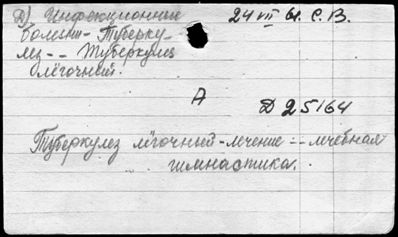 Д) Инфекционные
болезни - Туберку-
лез -- Туберкулез
лёгочный.
24 VII 61. С.В.
А
Д 25164
Туберкулез лёгочный - лечение -- лечебная
гимнастика.